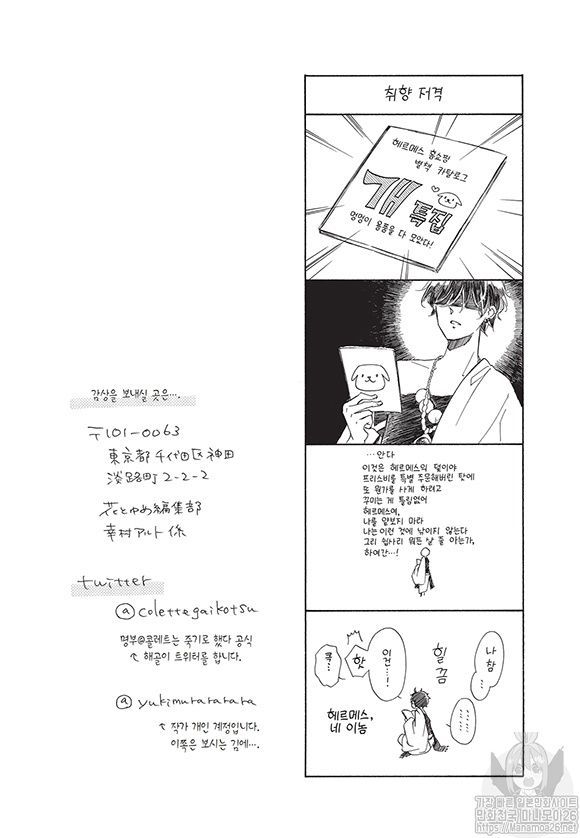 취향 저격
헤르메스 홈쇼핑
별책 카탈로그
개
특집
멍멍이 용품을 다 모았다!
…안다
이것은 헤르메스의 덫이야
프리스비를 특별 주문해버린 탓에
또 뭔가를 사게 하려고
꾸미는 게 틀림없어
헤르메스여,
나를 얕보지 마라
나는 이런 것에 낚이지 않는다
그리 쉽사리 뭐든 살 줄 아는가,
하여간…!
나 참…
힐끔
이건…!
핫
큭…
헤르메스,
네 이놈
감상을 보내실 곳은….
〒101-0063
東京都千代田区神田
淡路町2-2-2
花とゆめ編集部
幸村アルト係
twitter
@colettegaikotsu
명부@콜레트는 죽기로 했다 공식
↖ 해골이 트위터를 합니다.
@yukimurararara
↖ 작가 개인 계정입니다.
이쪽은 보시는 김에….
가장 빠른 일본만화사이트
만화천국 마나모아26
https://Manamoa26.net